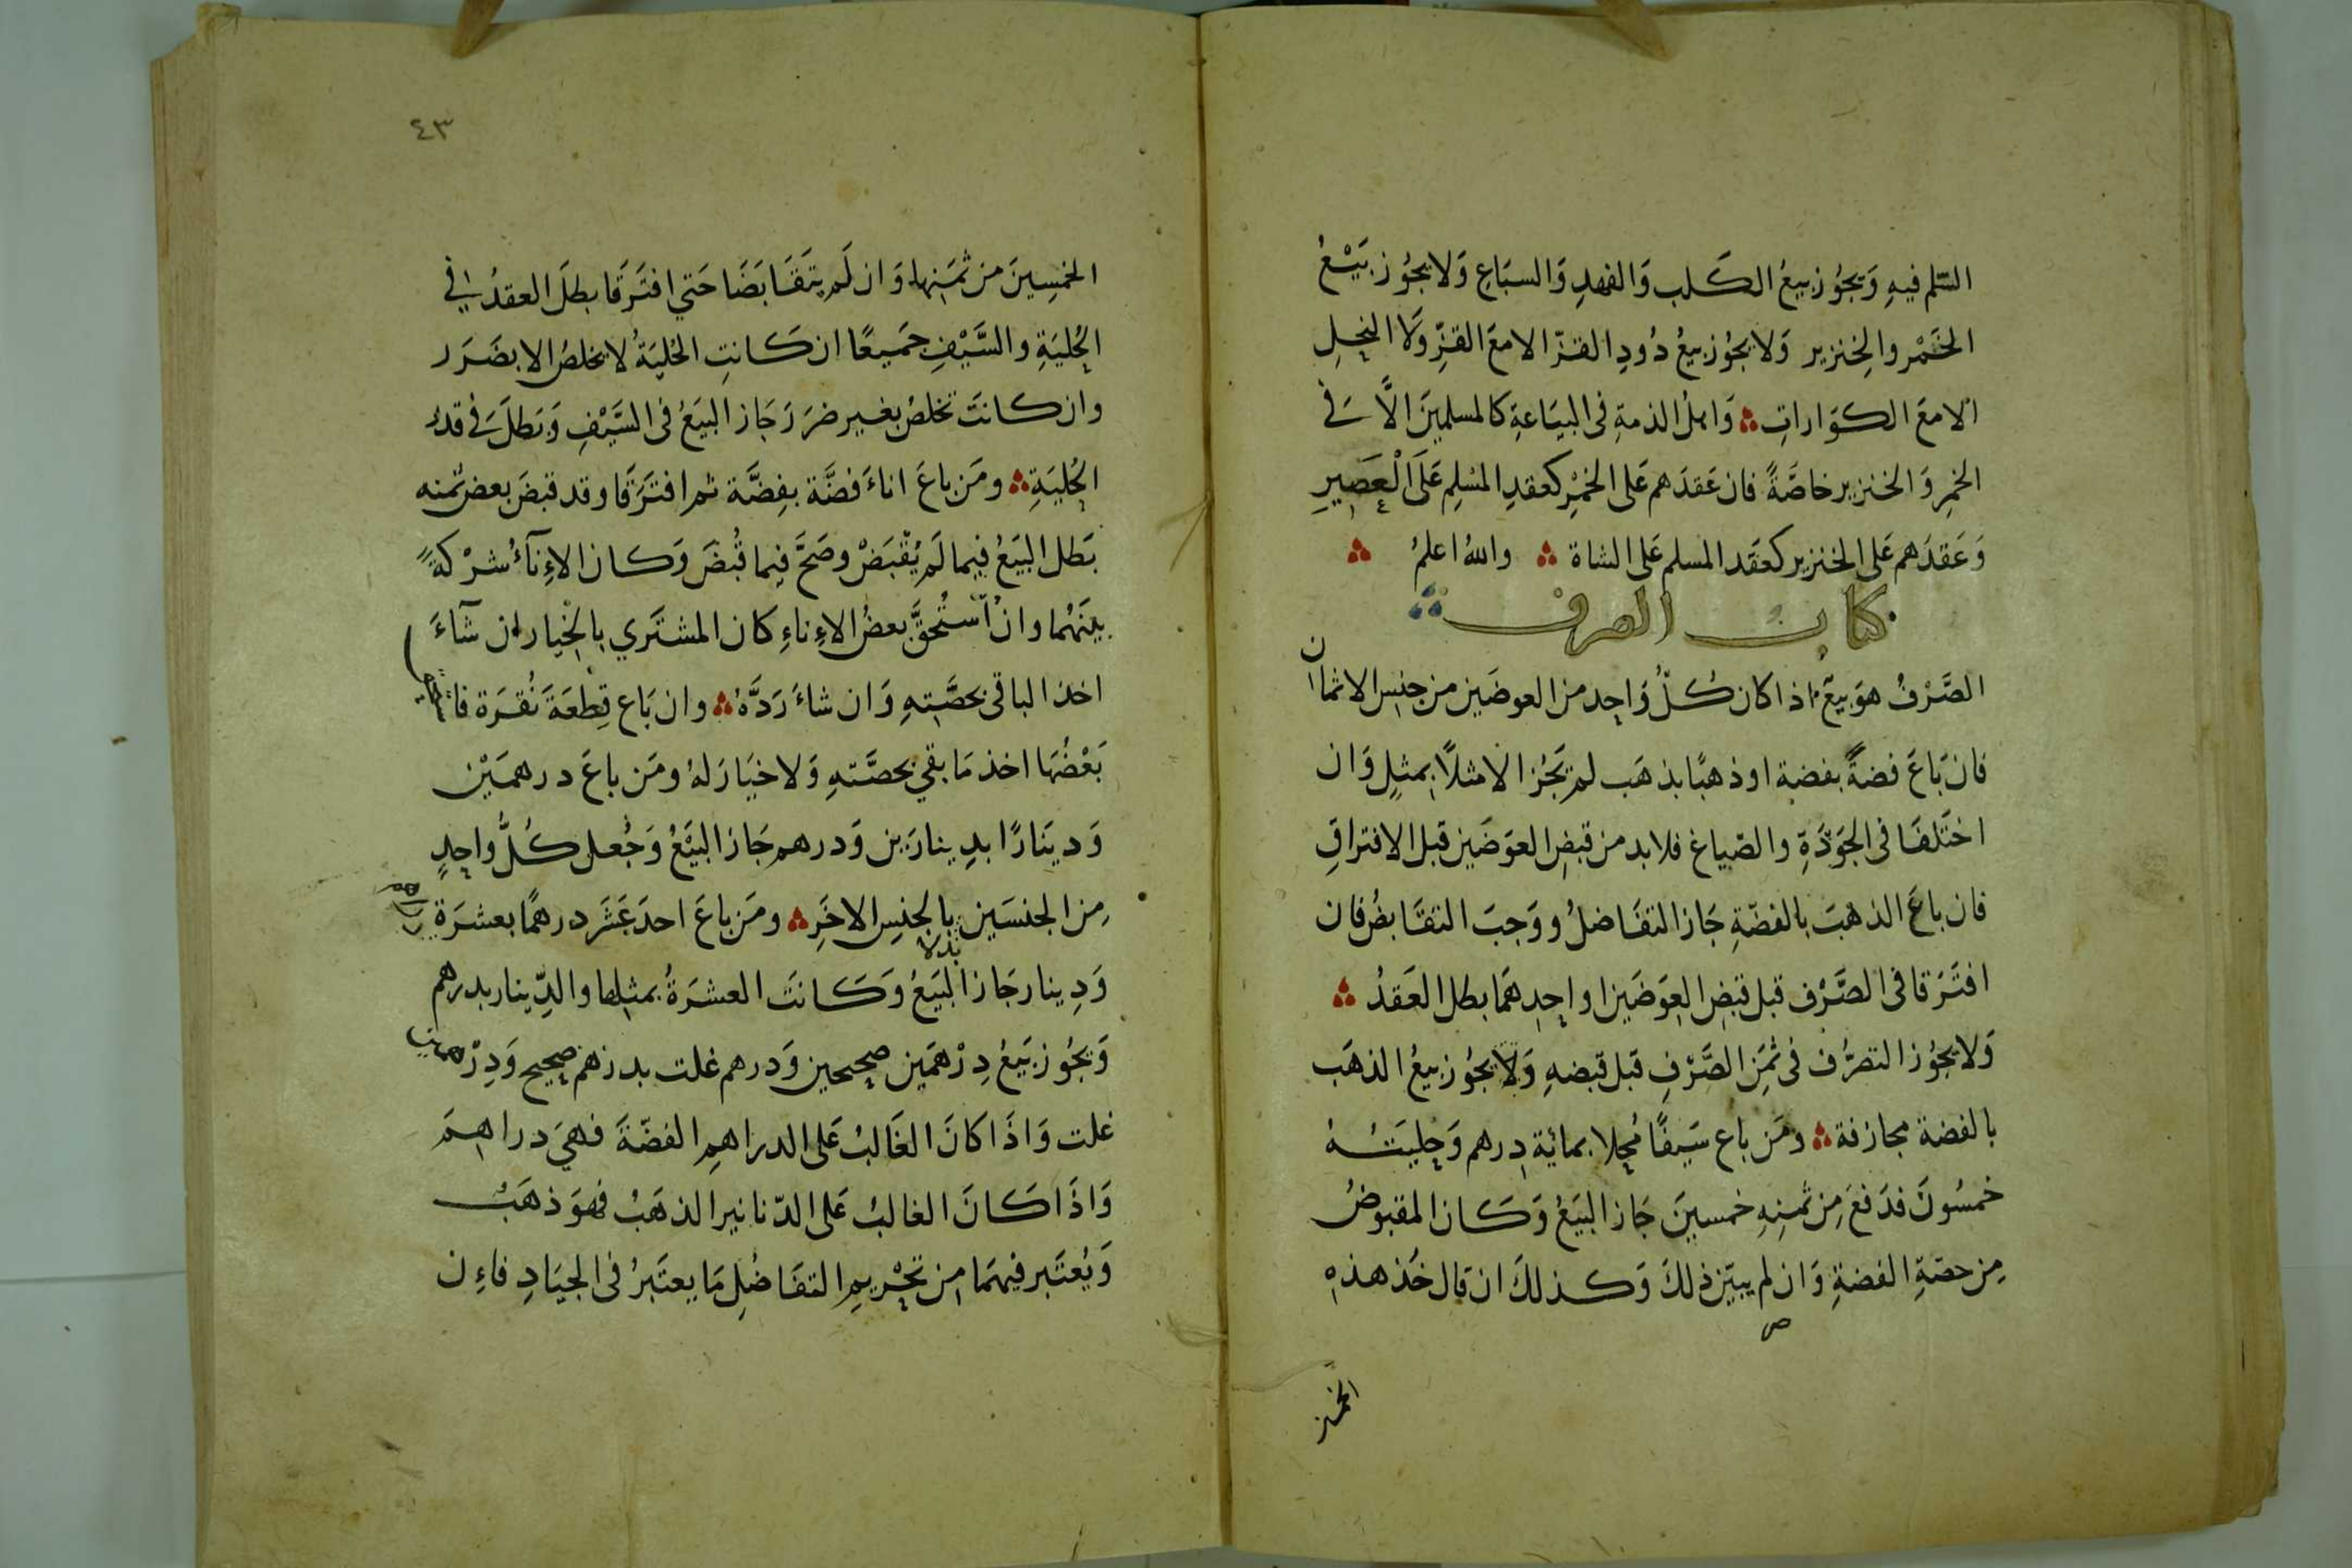 السّلم فيهِ وَيجُوز بيعُ الكَلب وَالفهدِ وَالسبَاعِ وَلا يجُوز بَيْعُ
الخَمْر والخِنزير وَلا يجُوز بيعُ دُودِ القزّ الا معَ القزِّ وَلا النحِلِ
الا معَ الكوَاراتِ وَاهلُ الذمةِ فى البيَاعةِ كالمسلمينَ الَّا فى
الخمرِ وَالخنزير خاصَّةً فان عَقدَهم عَلى الخمْرِ كعقدِ المسْلِم عَلَى الْعَصِيرِ
وَعَقدَهم عَلى الخنزير كعَقد المسلم عَلى الشاة والله اعلمُ
كتاب الصرف
الصَّرْفُ هوَ بيعٌ اذا كان كُلُّ وَاحِد من العوضَين من جنسِ الاثمان
فان بَاعَ فضةً بفضة او ذهبًا بذهَب لم تَجُز الا مثلًا بمثلٍ وَان
اختَلفَا فى الجَوْدَةِ والصّياغ فلابد من قبضِ العوَضَين قبل الافتراقِ
فان باعَ الذهبَ بالفضّةِ جَاز التفَاضلُ ووَجبَ التقَابضُ فان
افتَرَقا فى الصَّرْف قبل قبضِ العِوَضَين او احِدِهمَا بطل العَقدُ
وَلا يجُوز التصرُّف فى ثمَنِ الصَّرْفِ قبل قبضهِ وَلا يجُوز بيعُ الذهَب
بالفضة مجازفة ومَن باع سَيفًا مُحلا بمائة درهم وَحِليَتُهُ
خمسُونَ فدَفعَ مِن ثمنِهِ خمسينَ جَاز البَيَعُ وَكَان المقبوضُ
مِن حصّةِ الفضةِ وَان لم يبيّن ذلكَ وَكذلكَ ان قال خُذ هذهِ
ص
الخمسين
٤٣
الخمسِينَ من ثمَنِها وَان لَم يتَقَابَضَا حَتي افتَرَقَا بطلَ العقدُ فى
الحُليَةِ والسَّيْفِ جمَيعًا ان كَانتِ الحُليَةُ لا يخلصُ الا بضَرَر
وان كانتَ تخلصُ بغير ضرَر جَاز البَيعُ فى السَّيْفِ وَبَطلَ فى قدْرِ
الحُليَةِ ومَن باعَ اناءَ فضَّة بفِضَّة ثم افتَرَقَا وقد قبضَ بعض ثمنه
بَطل البَيعُ فيما لَم يُقْبَضْ وصَحَّ فيما قُبضَ وَكان الاِنآءُ شرْكةً
بينَهُما وانْ اسْتُحقَّ بعضُ الاِناءِ كان المشتَري بالخيار ان شآءَ
اخذ الباقى بحصَّتهِ وَان شاءَ رَدَّهُ وان بَاع قِطعَةَ نُقرَة فاستحق
بَعْضُهَا اخذ مَا بقي بحصَّتهِ وَلا خيَارَ لهُ ومَن باعَ درهمَيْن
وَدينَارًا بدِينارَين وَدرهم جَاز البَيَعُ وَجُعل كُلُّ واحِدٍ
مِن الجنسَين بالجنِسِ الاخَرِ ومَن باعَ احدَ عَشَر درهمًا بعشرَة دراهم
بدلا
وَدِينار جَاز البَيَعُ وَكَانتَ العشرَةُ بمثلِها والدِّينار بدرهم
وَيجُوز بَيعُ دِرْهمَين صحيحين وَدرهم غلت بدرهم صحيح وَدِرْهمين
غلت وَاذَا كانَ الغَالبُ عَلى الدراهمِ الفضّةَ فهيَ دراهمَ
وَاذَا كَانَ الغالبُ عَلى الدّنانير الذهَبُ فهوَ ذهَبُ
وَيُعتَبر فيهمَا مِن تحْريمِ التفَاضُلِ مَا يعتَبرُ فى الجيَادِ فاِن